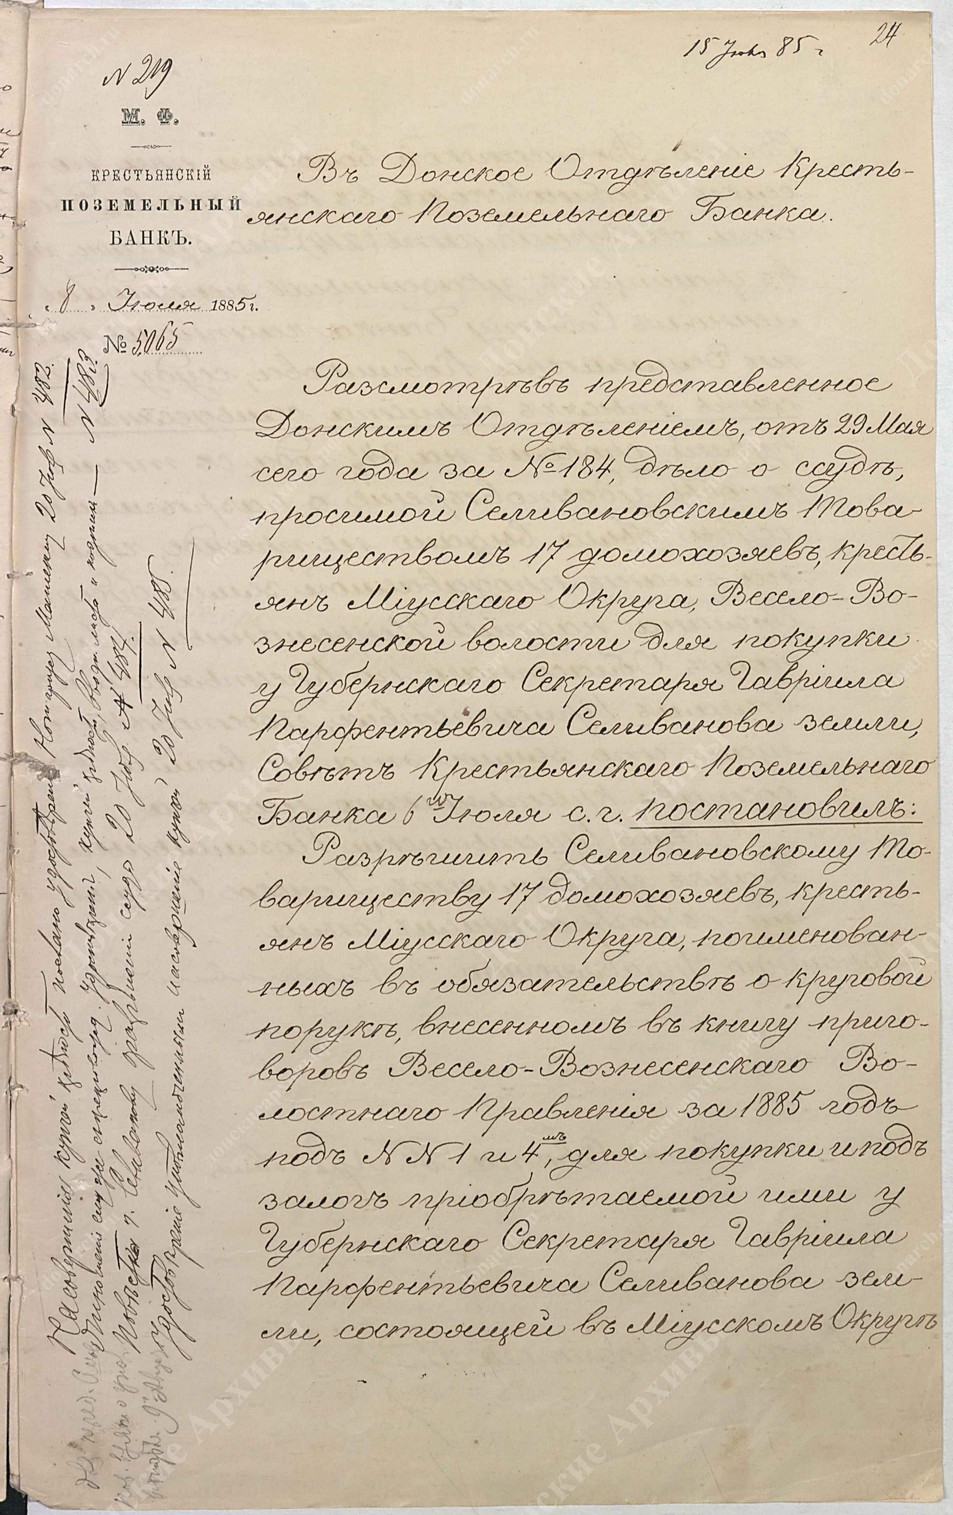 15 Июля 85 г
24
N 219
М. Ф.
КРЕСТЬЯНСКІЙ
ПОЗЕМЕЛЬНЫЙ
БАНКЪ.
„ 8 „ Іюля 1885 г.
№ 5065
Въ Донское Отдѣленіе Кресть-
янскаго Поземельнаго Банка.
Разсмотрѣвъ представленное
Донскимъ Отдѣленіемъ, отъ 29 Мая
сего года за № 184, дѣло о ссудѣ,
просимой Селивановскимъ Това-
риществомъ 17 домохозяевъ, кресть-
янъ Міусскаго Округа, Весело-Во-
знесенской волости для покупки
у Губернскаго Секретаря Гавріила
Парфентьевича Селиванова земли,
Совѣтъ Крестьянскаго Поземельнаго
Банка 6го Іюля с. г. постановилъ:
Разрѣшить Селивановскому То-
вариществу 17 домохозяевъ, кресть-
янъ Міусскаго Округа, поименован-
ныхъ въ обязательствѣ о круговой
порукѣ, внесенномъ въ книгу приго-
воровъ Весело-Вознесенскаго Во-
лостнаго Правленія за 1885 годъ
подъ N N 1 и 4мъ, для покупки и подъ
залогъ пріобрѣтаемой ими у
Губернскаго Секретаря Гавріила
Парфентьевича Селиванова зем-
ли, состоящей въ Міусскомъ Округѣ
На совершеніе купчей крѣпости послано удостовѣреніе Нотаріусу 20 N 482.
купчей крѣпости N 483
Повѣстка г. Селиванову 20 N 484.
Удостовѣреніе купчей 20 N 485.